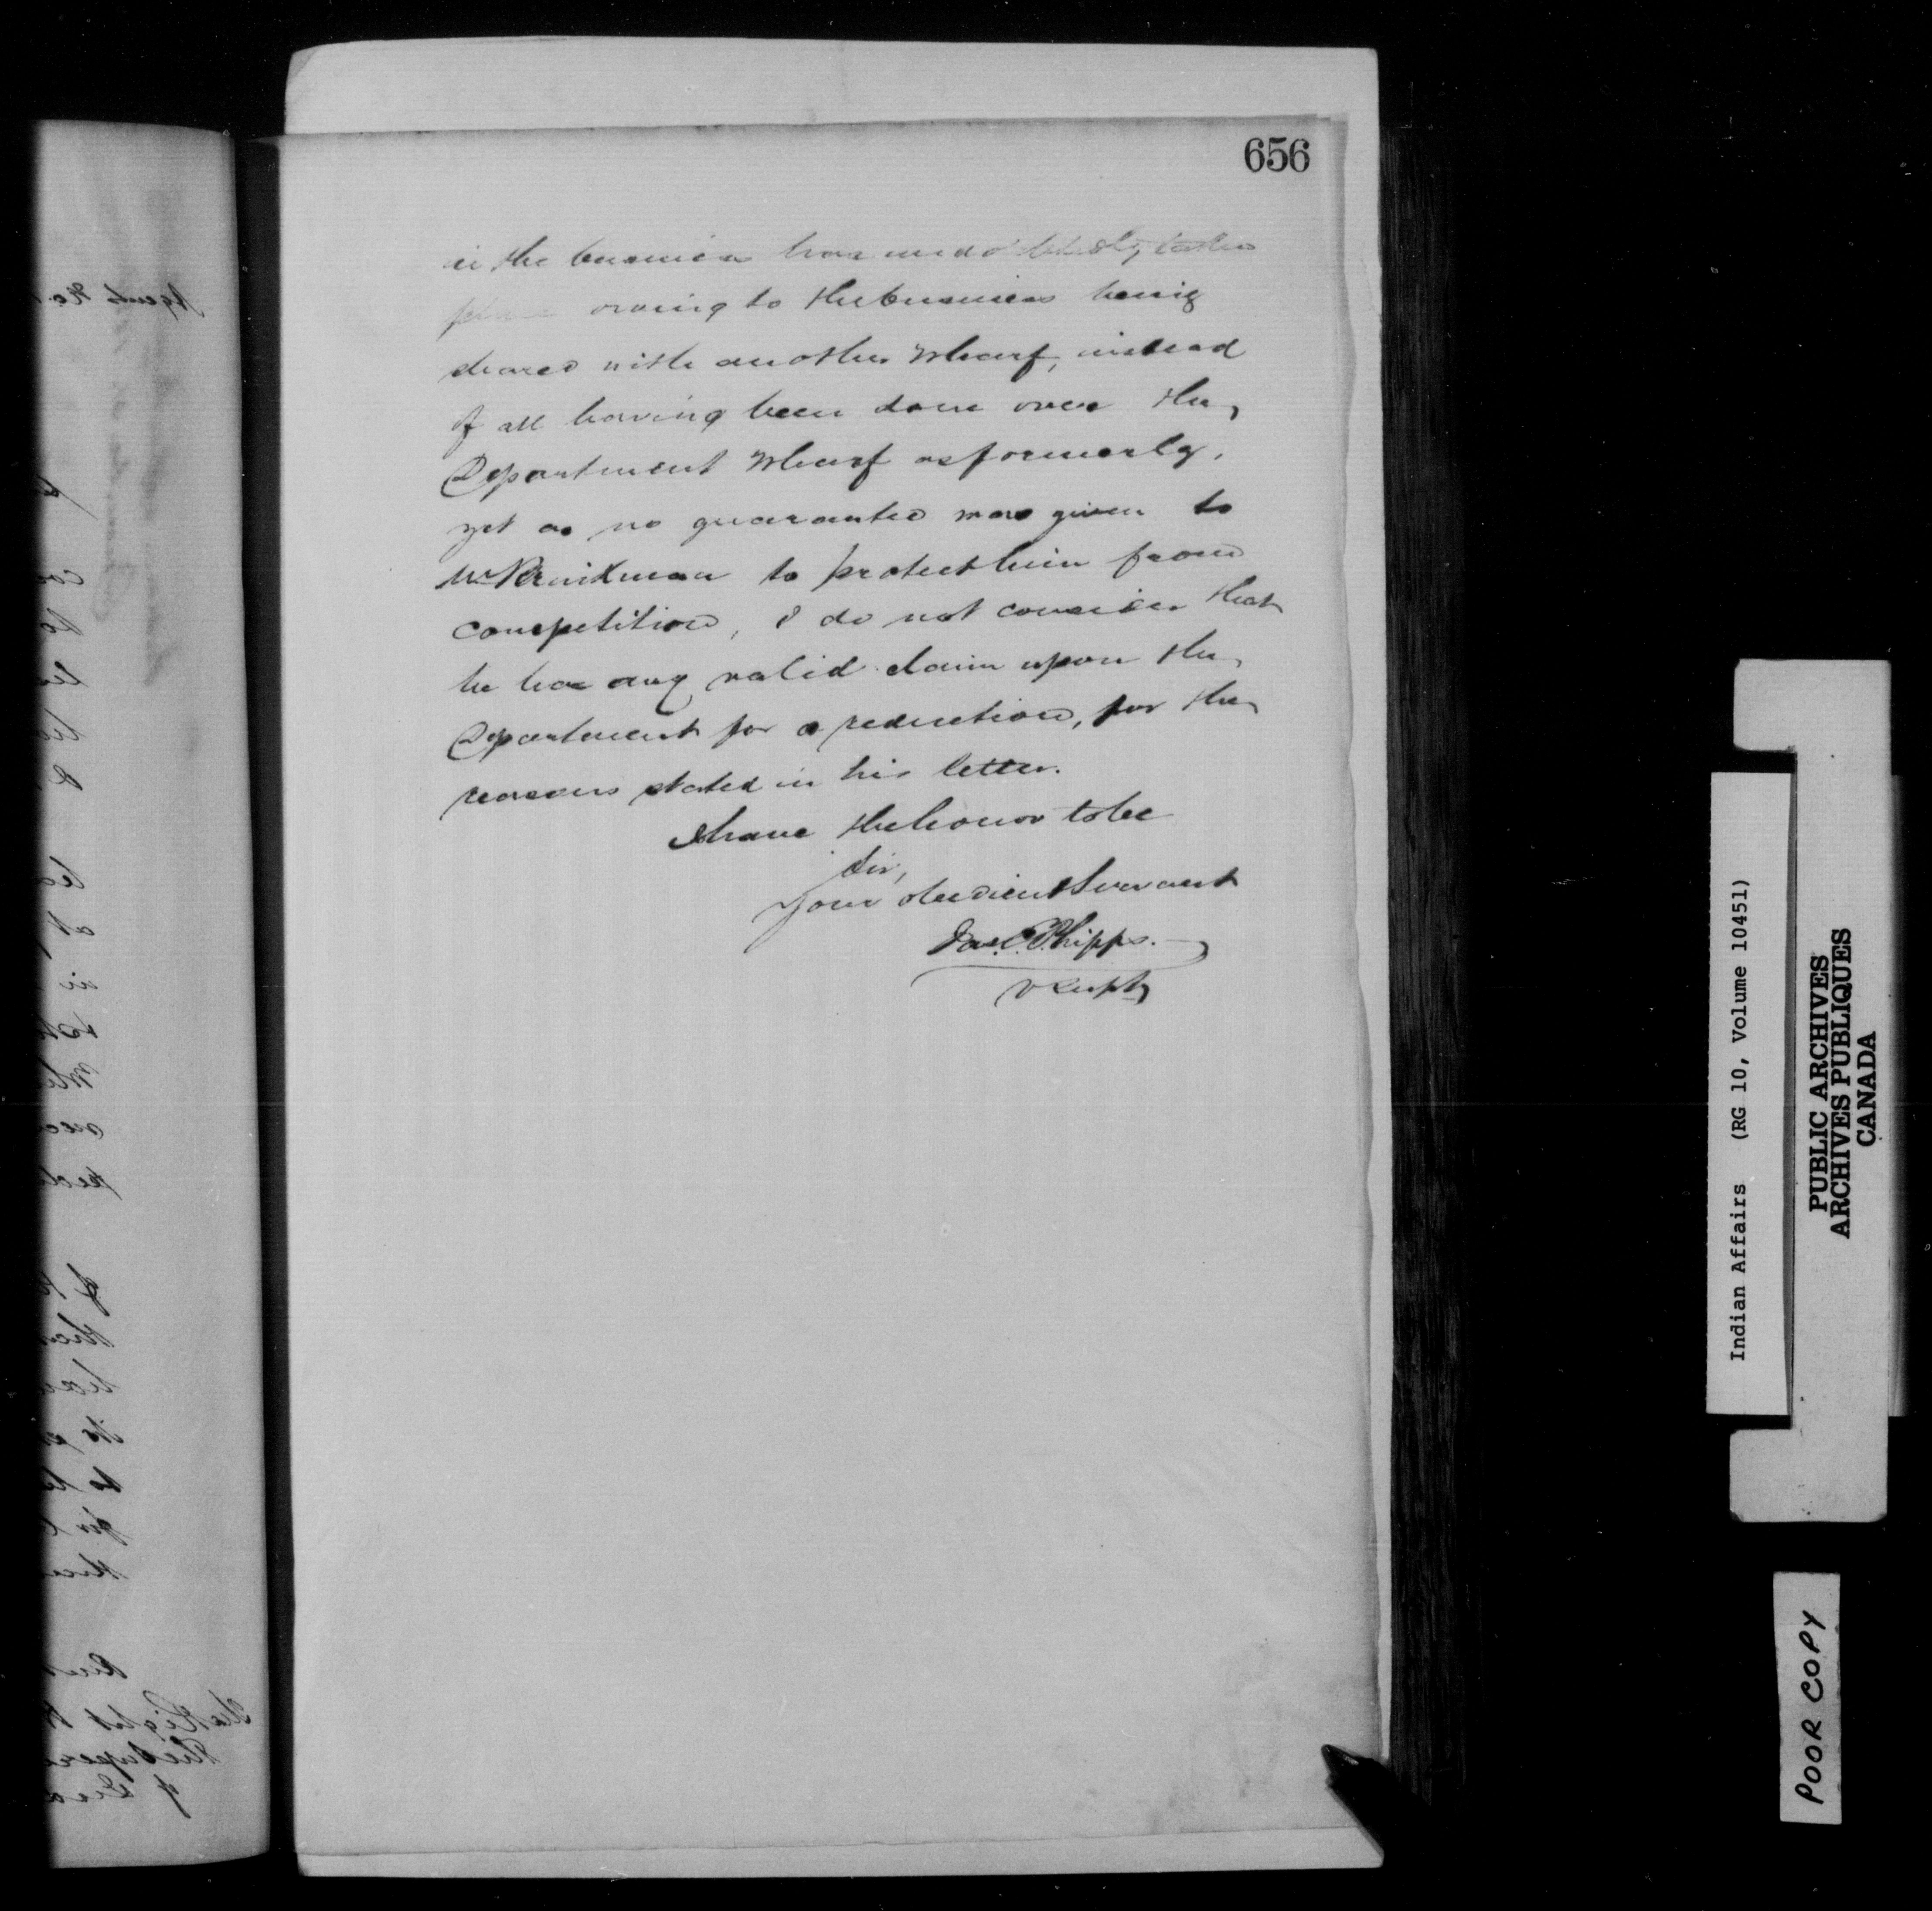 656
in the business has undoubtedly taken
place owing to the business being
shared with another Wharf, instead
of all having been done over the
Department Wharf as formerly,
yet as no guarantee was given to
Mr to protect him from
competition, I do not consider that
he has any valid claim upon the
Department for a reduction, for the
reasons stated in his letter.
I have the honor to be
Sir,
Your obedient Servant
Jas. C. Phipps.
V Supt
Indian Affairs (RG 10, Volume 10451)
PUBLIC ARCHIVES
ARCHIVES PUBLIQUES
CANADA
POOR COPY